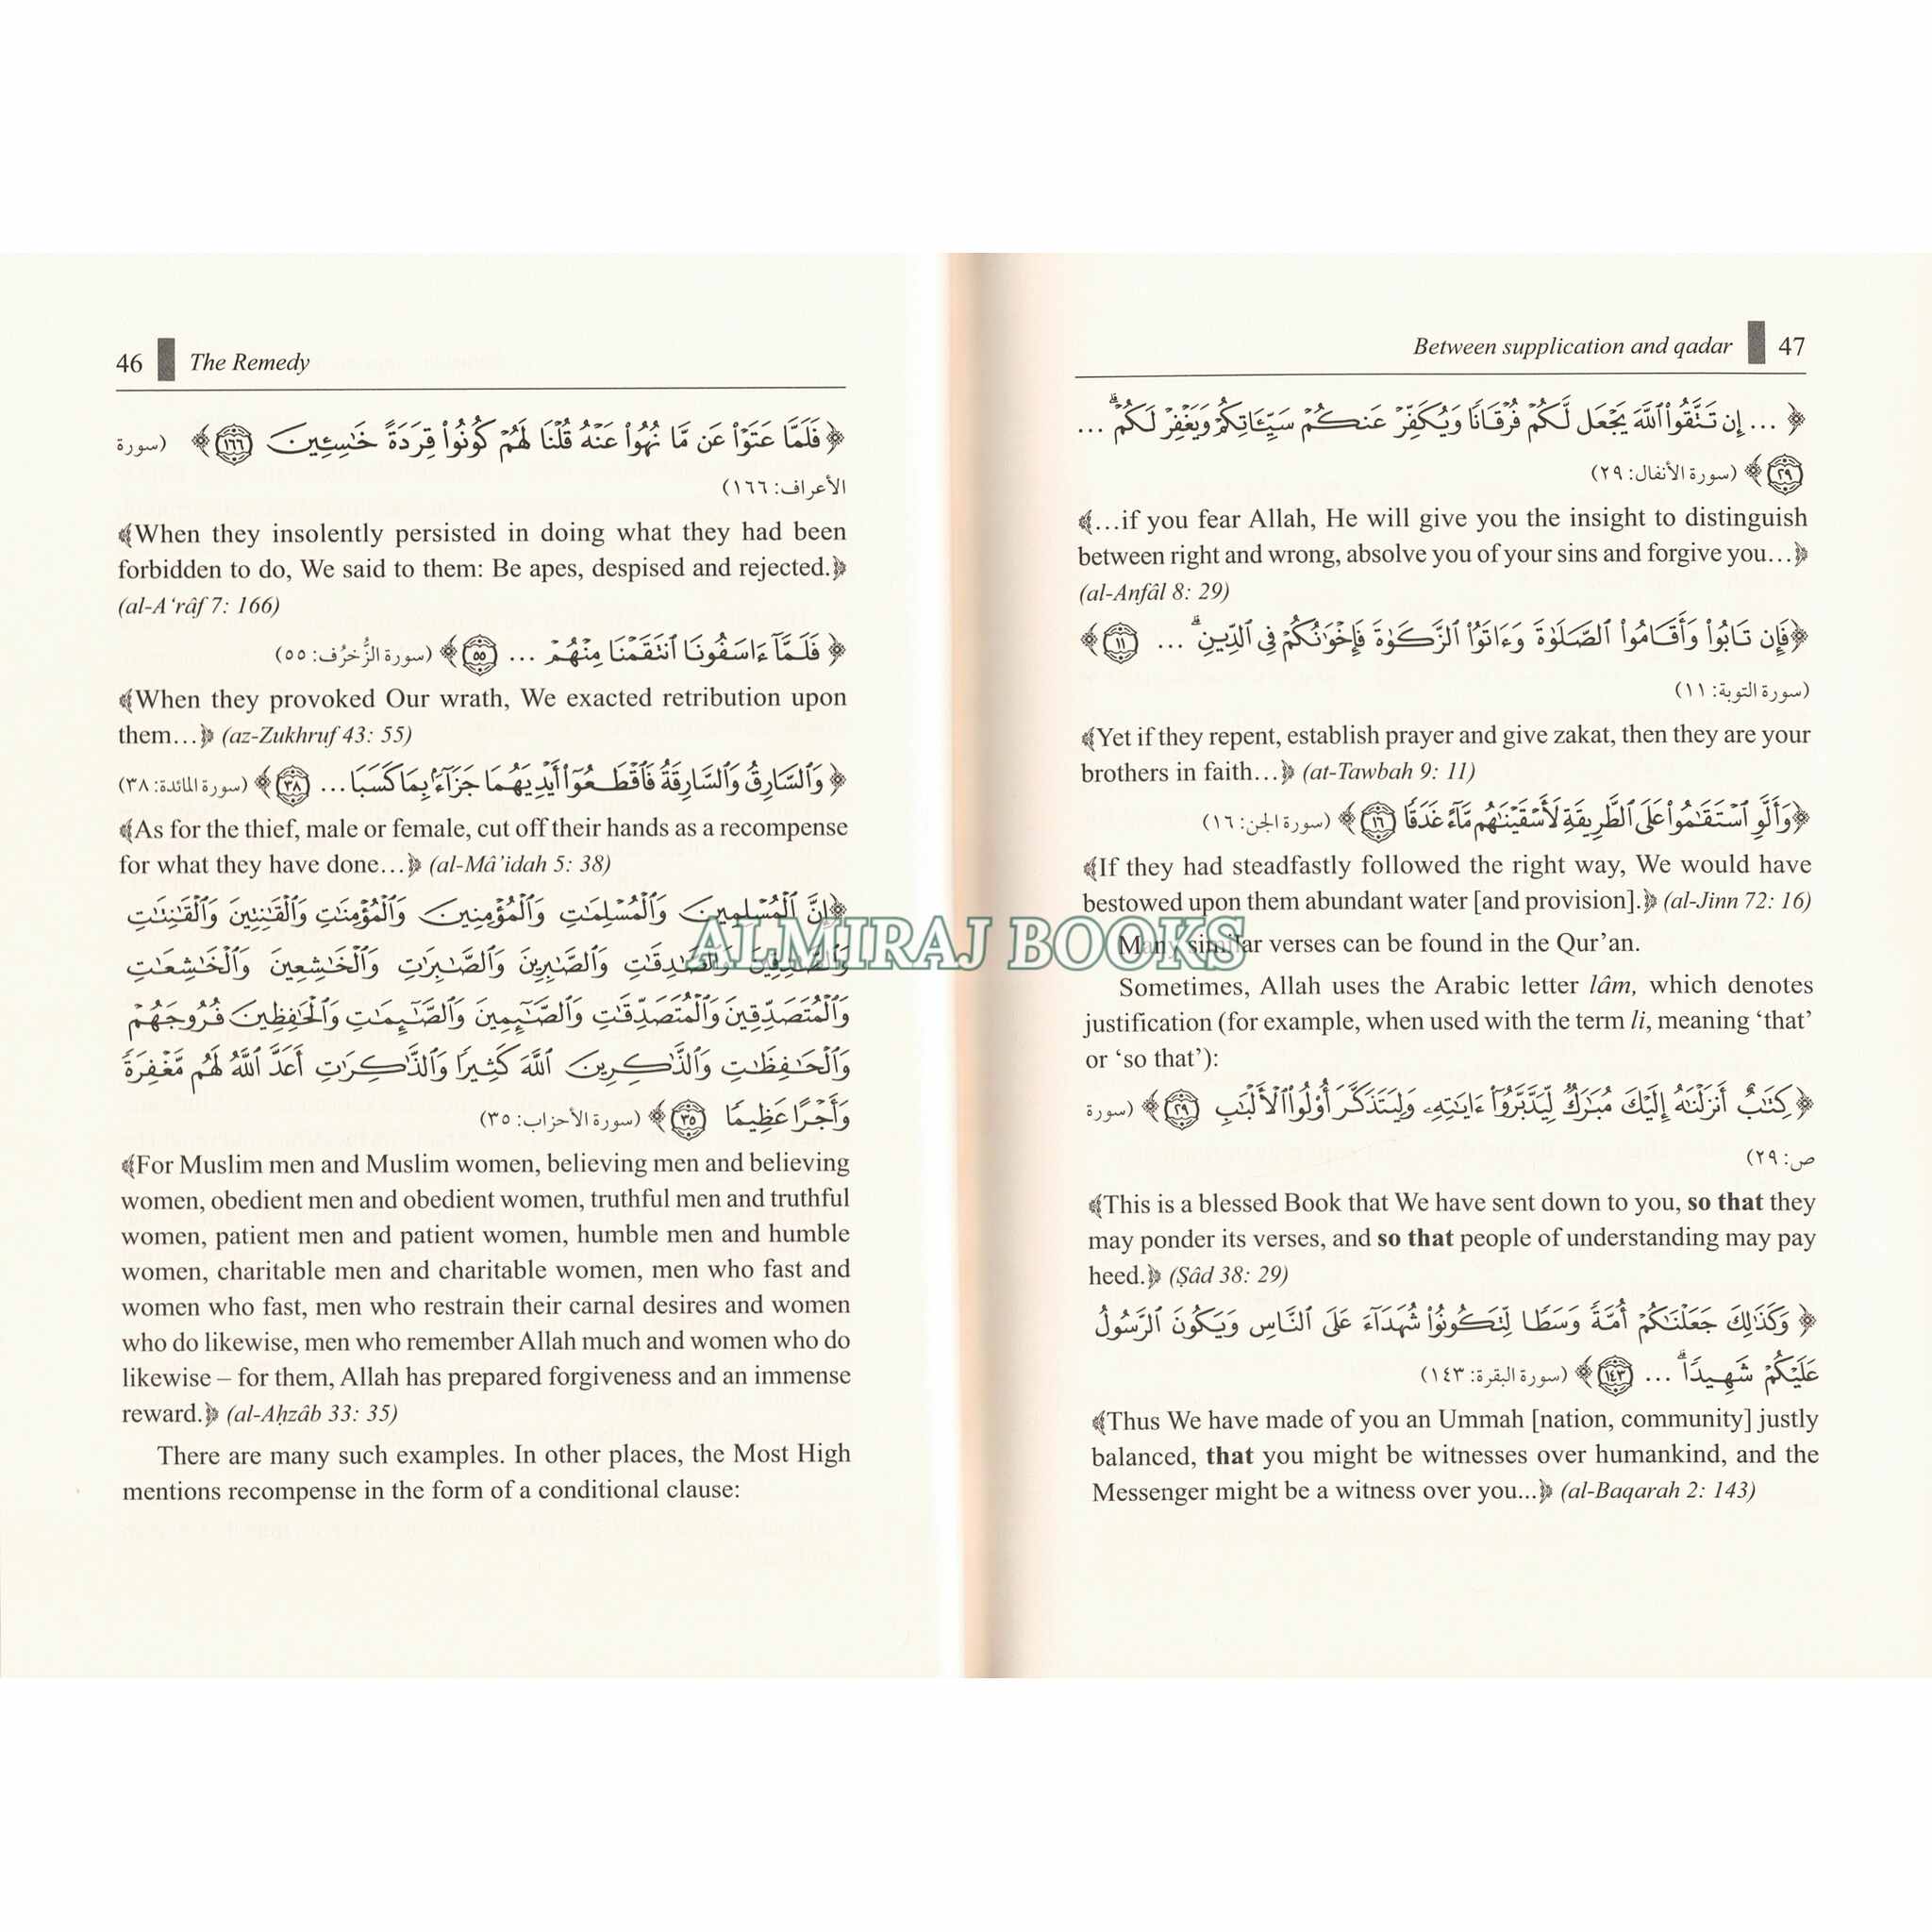 46 The Remedy
﴿ فَلَمَّا عَتَوْا۟ عَن مَّا نُهُوا۟ عَنْهُ قُلْنَا لَهُمْ كُونُوا۟ قِرَدَةً خَـٰسِـِٔينَ ١٦٦ ﴾ (سورة
الأعراف: ١٦٦)
﴾When they insolently persisted in doing what they had been
forbidden to do, We said to them: Be apes, despised and rejected.﴿
(al-A‘râf 7: 166)
﴿ فَلَمَّآ ءَاسَفُونَا ٱنتَقَمْنَا مِنْهُمْ ... ٥٥ ﴾ (سورة الزُّخرُف: ٥٥)
﴾When they provoked Our wrath, We exacted retribution upon
them…﴿ (az-Zukhruf 43: 55)
﴿ وَٱلسَّارِقُ وَٱلسَّارِقَةُ فَٱقْطَعُوٓا۟ أَيْدِيَهُمَا جَزَآءًۢ بِمَا كَسَبَا ... ٣٨ ﴾ (سورة المائدة: ٣٨)
﴾As for the thief, male or female, cut off their hands as a recompense
for what they have done…﴿ (al-Mâ’idah 5: 38)
﴿إِنَّ ٱلْمُسْلِمِينَ وَٱلْمُسْلِمَـٰتِ وَٱلْمُؤْمِنِينَ وَٱلْمُؤْمِنَـٰتِ وَٱلْقَـٰنِتِينَ وَٱلْقَـٰنِتَـٰتِ
وَٱلصَّـٰدِقِينَ وَٱلصَّـٰدِقَـٰتِ وَٱلصَّـٰبِرِينَ وَٱلصَّـٰبِرَٰتِ وَٱلْخَـٰشِعِينَ وَٱلْخَـٰشِعَـٰتِ
وَٱلْمُتَصَدِّقِينَ وَٱلْمُتَصَدِّقَـٰتِ وَٱلصَّـٰٓئِمِينَ وَٱلصَّـٰٓئِمَـٰتِ وَٱلْحَـٰفِظِينَ فُرُوجَهُمْ
وَٱلْحَـٰفِظَـٰتِ وَٱلذَّٰكِرِينَ ٱللَّهَ كَثِيرًا وَٱلذَّٰكِرَٰتِ أَعَدَّ ٱللَّهُ لَهُم مَّغْفِرَةً
وَأَجْرًا عَظِيمًا ٣٥ ﴾ (سورة الأحزاب: ٣٥)
﴾For Muslim men and Muslim women, believing men and believing
women, obedient men and obedient women, truthful men and truthful
women, patient men and patient women, humble men and humble
women, charitable men and charitable women, men who fast and
women who fast, men who restrain their carnal desires and women
who do likewise, men who remember Allah much and women who do
likewise – for them, Allah has prepared forgiveness and an immense
reward.﴿ (al-Aḥzâb 33: 35)
There are many such examples. In other places, the Most High
mentions recompense in the form of a conditional clause:
Between supplication and qadar 47
﴿ ... إِن تَتَّقُوا۟ ٱللَّهَ يَجْعَل لَّكُمْ فُرْقَانًا وَيُكَفِّرْ عَنكُمْ سَيِّـَٔاتِكُمْ وَيَغْفِرْ لَكُمْ ۗ ...
٢٩ ﴾ (سورة الأنفال: ٢٩)
﴾…if you fear Allah, He will give you the insight to distinguish
between right and wrong, absolve you of your sins and forgive you…﴿
(al-Anfâl 8: 29)
﴿فَإِن تَابُوا۟ وَأَقَامُوا۟ ٱلصَّلَوٰةَ وَءَاتَوُا۟ ٱلزَّكَوٰةَ فَإِخْوَٰنُكُمْ فِى ٱلدِّينِ ۗ ... ١١ ﴾
(سورة التوبة: ١١)
﴾Yet if they repent, establish prayer and give zakat, then they are your
brothers in faith…﴿ (at-Tawbah 9: 11)
﴿وَأَلَّوِ ٱسْتَقَـٰمُوا۟ عَلَى ٱلطَّرِيقَةِ لَأَسْقَيْنَـٰهُم مَّآءً غَدَقًا ١٦ ﴾ (سورة الجن: ١٦)
﴾If they had steadfastly followed the right way, We would have
bestowed upon them abundant water [and provision].﴿ (al-Jinn 72: 16)
Many similar verses can be found in the Qur’an.
ALMIRAJ BOOKS
Sometimes, Allah uses the Arabic letter lâm, which denotes
justification (for example, when used with the term li, meaning ‘that’
or ‘so that’):
﴿ كِتَـٰبٌ أَنزَلْنَـٰهُ إِلَيْكَ مُبَـٰرَكٌ لِّيَدَّبَّرُوٓا۟ ءَايَـٰتِهِۦ وَلِيَتَذَكَّرَ أُو۟لُوا۟ ٱلْأَلْبَـٰبِ ٢٩ ﴾ (سورة
ص: ٢٩)
﴾This is a blessed Book that We have sent down to you, so that they
may ponder its verses, and so that people of understanding may pay
heed.﴿ (Ṣâd 38: 29)
﴿ وَكَذَٰلِكَ جَعَلْنَـٰكُمْ أُمَّةً وَسَطًا لِّتَكُونُوا۟ شُهَدَآءَ عَلَى ٱلنَّاسِ وَيَكُونَ ٱلرَّسُولُ
عَلَيْكُمْ شَهِيدًا ۗ ... ١٤٣ ﴾ (سورة البقرة: ١٤٣)
﴾Thus We have made of you an Ummah [nation, community] justly
balanced, that you might be witnesses over humankind, and the
Messenger might be a witness over you...﴿ (al-Baqarah 2: 143)